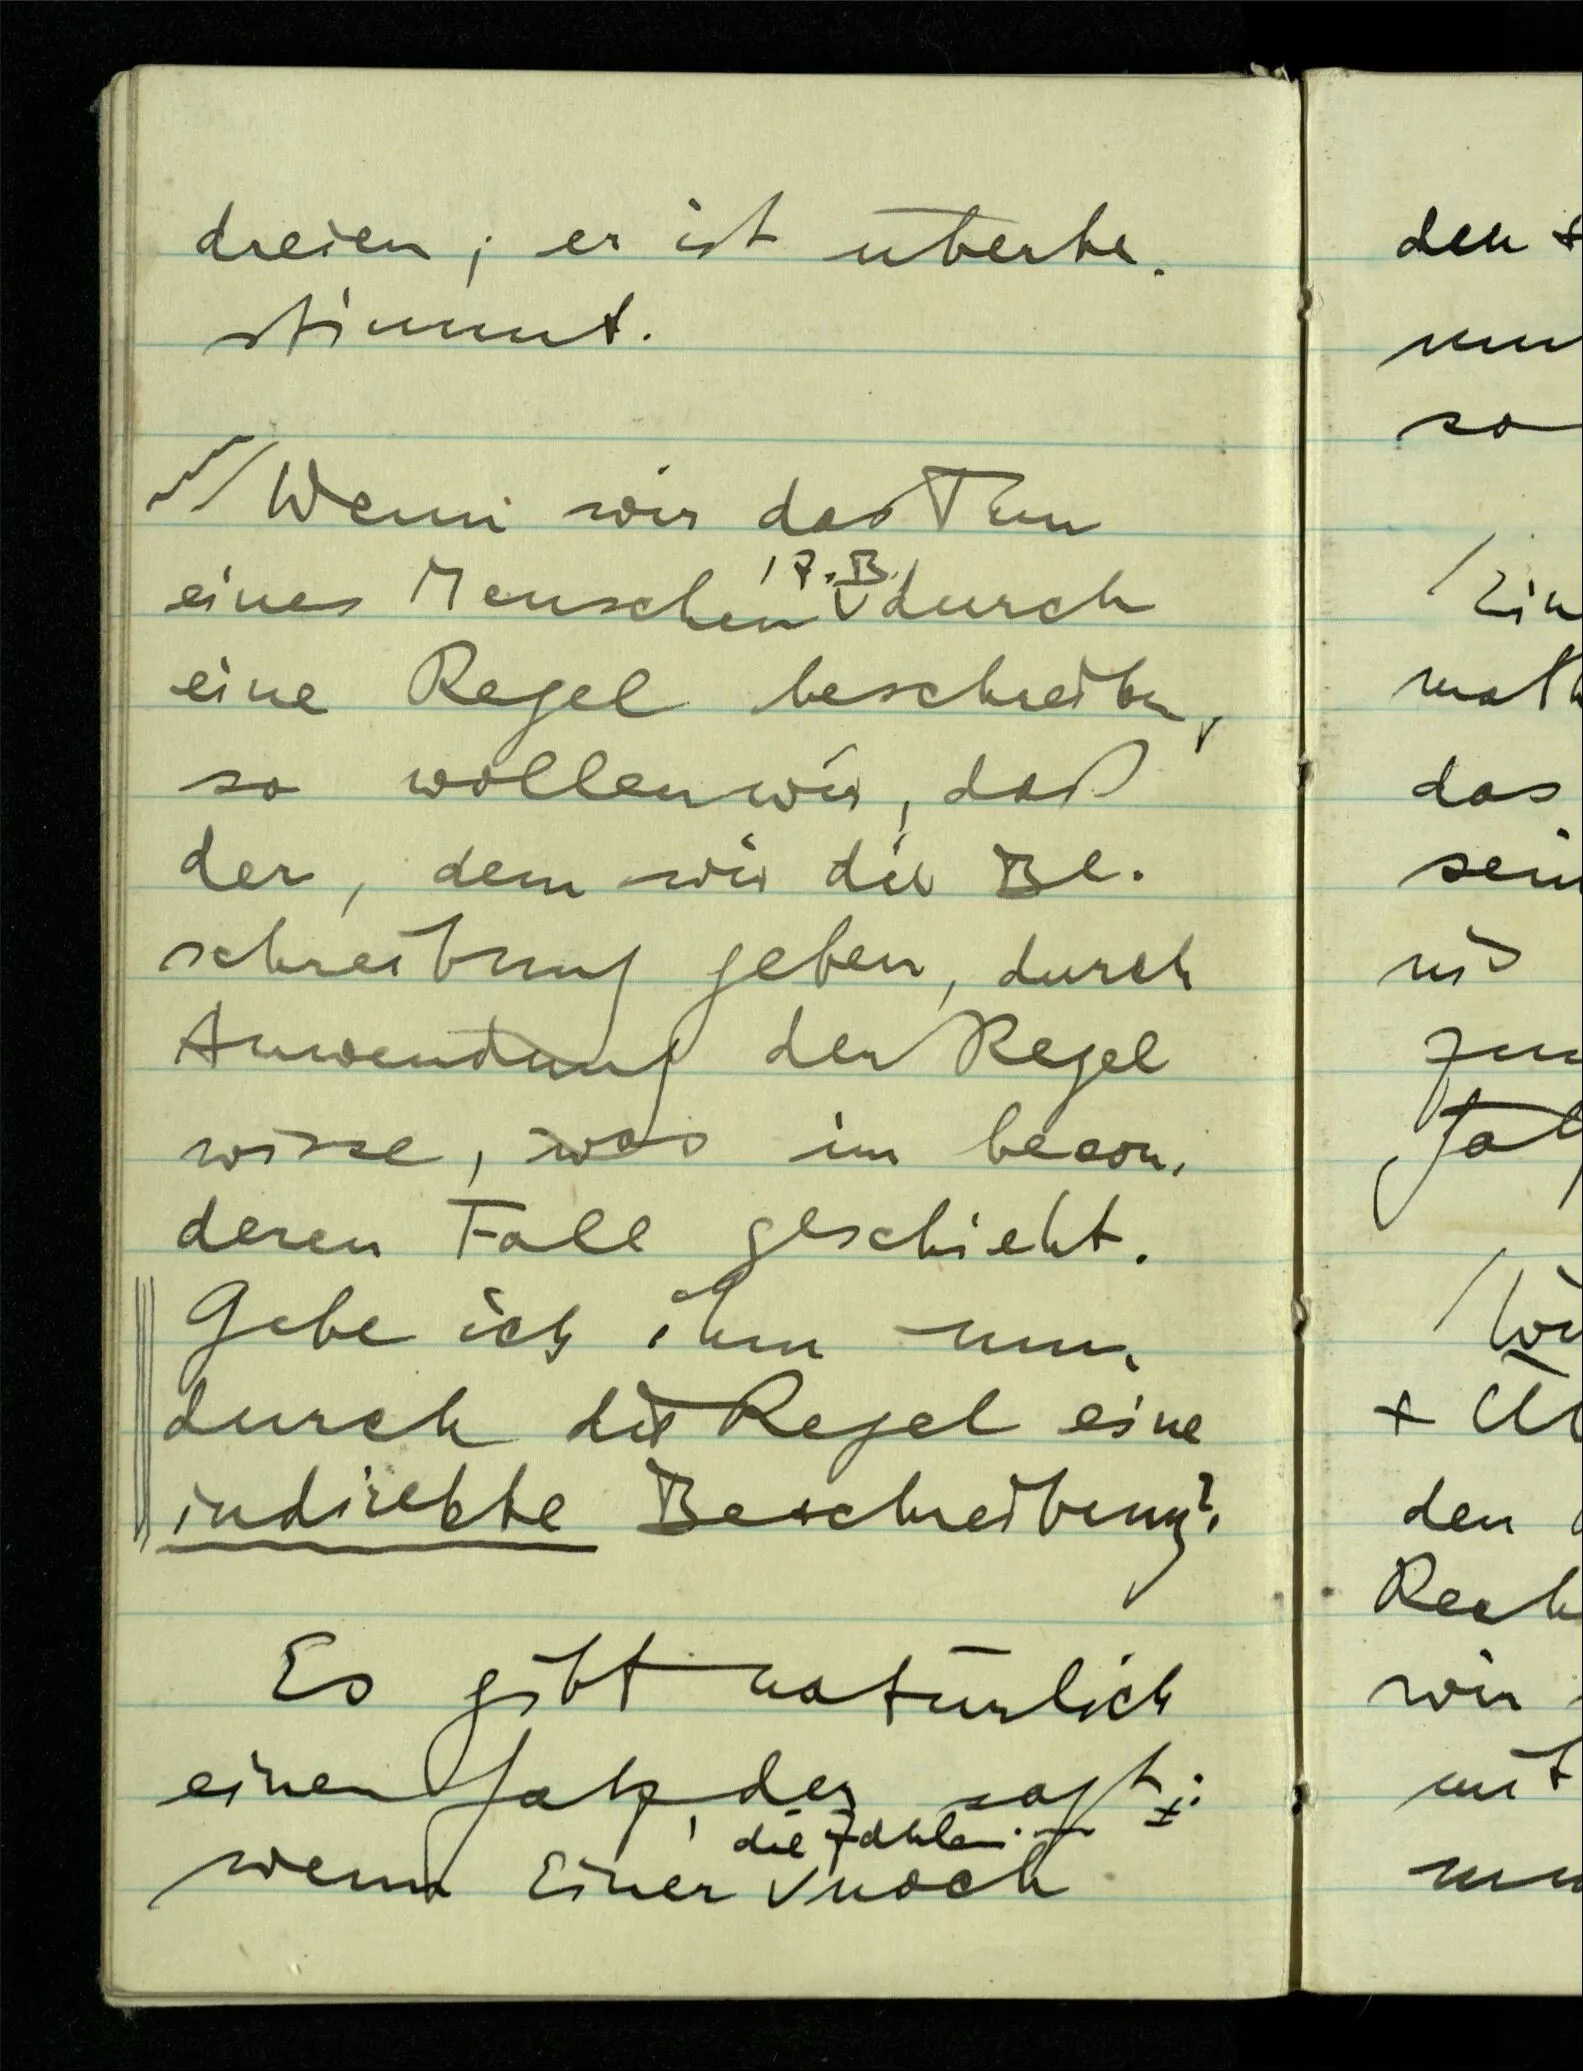 dreien; er ist überbe-
stimmt.
Wenn wir das Tun
eines Menschen ,z.B., durch
eine Regel beschreiben,
so wollen wir, daß
der, dem wir die Be-
schreibung geben, durch
Anwendung der Regel
wisse, was im beson-
deren Fall geschieht.
Gebe ich ihm nun
durch die Regel eine
indirekte Beschreibung?
Es gibt natürlich
einen Satz, der sagt:
wenn Einer die Zahlen noch
den
so
Ein
math
das
sein